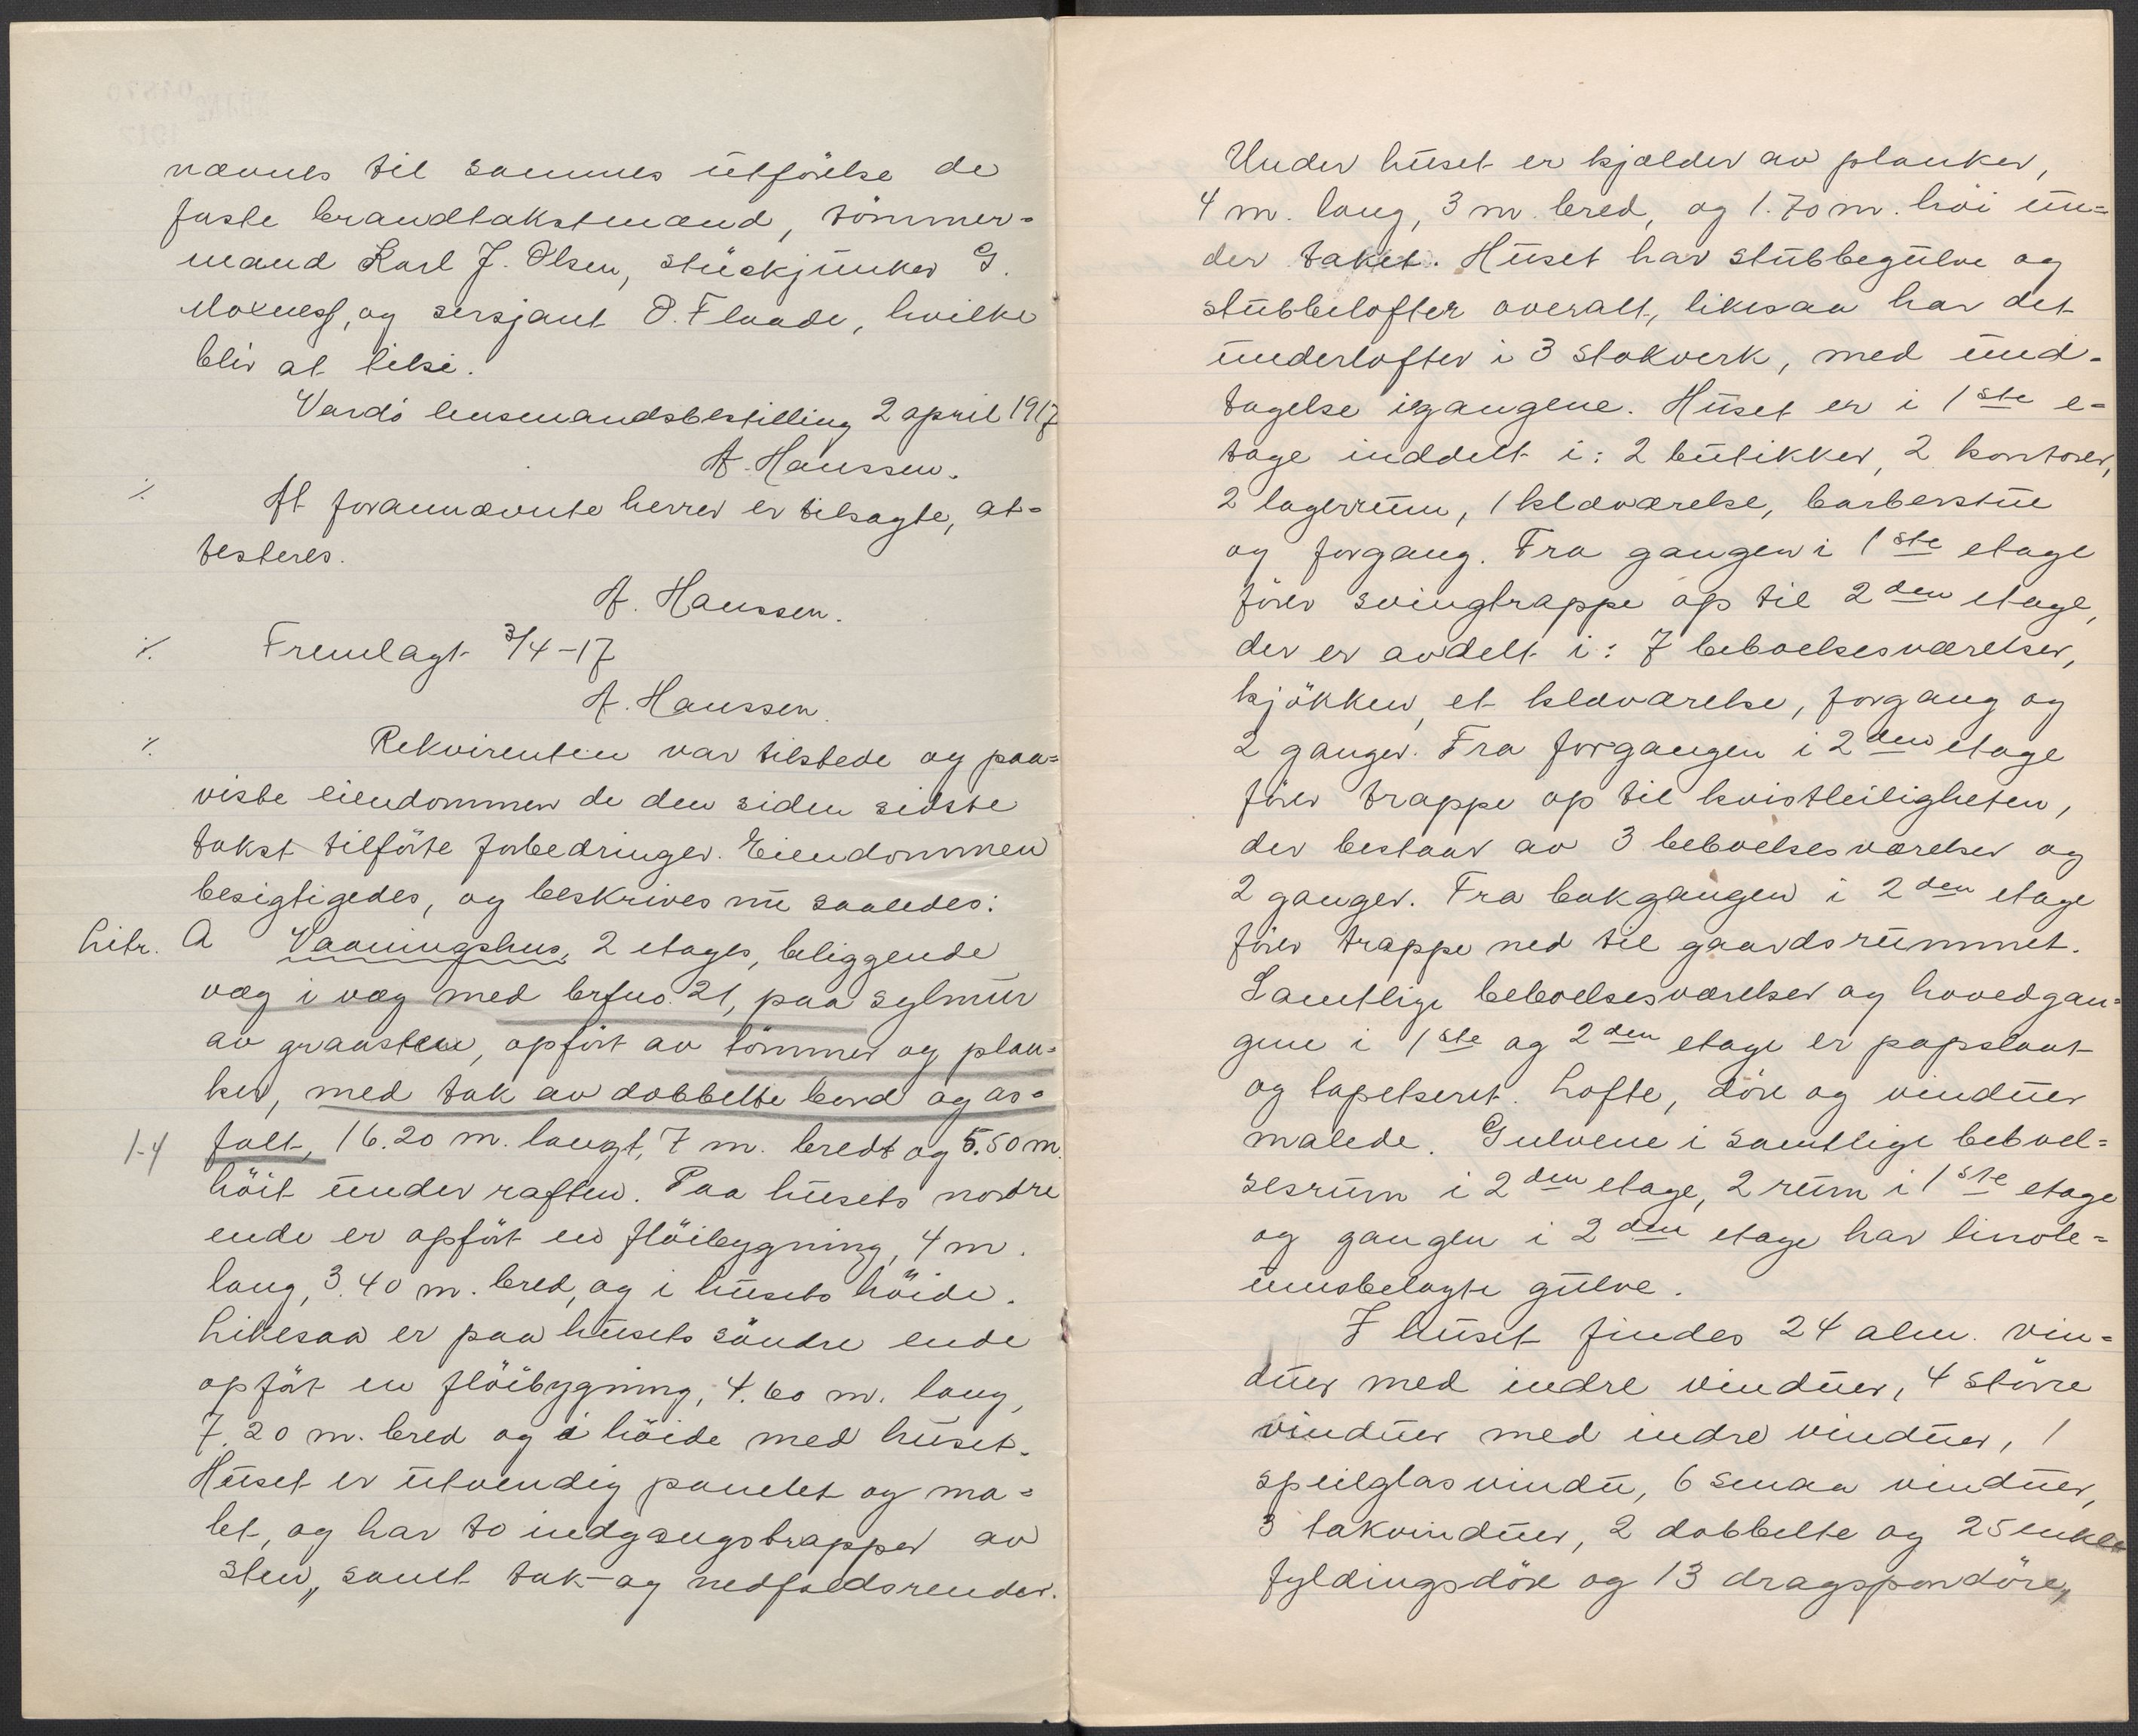 nævnes til sammes utförelse de
faste brandtakstmænd, tömmer=
mand Karl J. Olsen, stückjunker G.
Moxness, og sersjant O. Flaade, hvilke
bliv at tilsi.
Vardö lensmandsbestilling 2 april 1917
A. Hanssen.
./. At forannævnte herrer er tilsagte, at=
testeres.
A. Hanssen.
./. Fremlagt 3/4-17
A. Hanssen.
./. Rekvirenten var tilstede og paa=
viste eiendommen de den siden sidste
takst tilförte forbedringer. Eiendommen
besigtigedes, og beskrives nu saaledes:
Litr. A Vaaningshus, 2 etages, beliggende
væg i væg med brfno. 21, paa sylmur
av graasten, opfört av tömmer og plan=
ker, med tak av dobbelte bord og as=
1-4 falt, 16.20 m. langt, 7 m. bredt og 5.50 m.
höit under raften. Paa husets nordre
ende er opfört en flöibygning, 4 m.
lang, 3.40 m. bred, og i husets höide.
Likesaa er paa husets söndre ende
opfört en flöibygning, 4.60 m. lang,
7.20 m. bred og i höide med huset.
Huset er utvendig panelet og ma=
let, og har to indgangstrapper av
sten, samt tak- og nedfaldsrender.
Under huset er kjælder av planker,
4 m. lang, 3 m. bred, og 1.70 m. höi un=
der taket. Huset har stubbegulve og
stubbelofter overalt, likesaa har det
underlofter i 3 stokverk, med und-
tagelse i gangene. Huset er i 1ste e=
tage inddelt i: 2 butikker, 2 kontorer,
2 lagerrum, 1 kldværelse, barberstue
og forgang. Fra gangen i 1ste etage
förer svingtrappe op til 2den etage,
der er avdelt i: 7 beboelsesværelser,
kjökken, et kldværelse, forgang og
2 ganger. Fra forgangen i 2den etage
förer trappe op til kvistleiligheten,
der bestaar av 3 beboelsesværelser og
2 ganger. Fra bakgangen i 2den etage
förer trappe ned til gaardsrummet.
Samtlige beboelsesværelser og hovedgan=
gene i 1ste og 2den etage er papslaat
og tapetseret. Lofte, döre og vinduer
malede. Gulvene i samtlige beboel=
sesrum i 2den etage, 2 rum i 1ste etage
og gangen i 2den etage har linole=
umsbelagte gulve.
I huset findes 24 alm. vin=
duer med indre vinduer, 4 större
vinduer med indre vinduer, 1
speilglasvindu, 6 smaa vinduer,
3 takvinduer, 2 dobbelte og 25 enkle
fyldingsdöre og 13 dragspondöre,